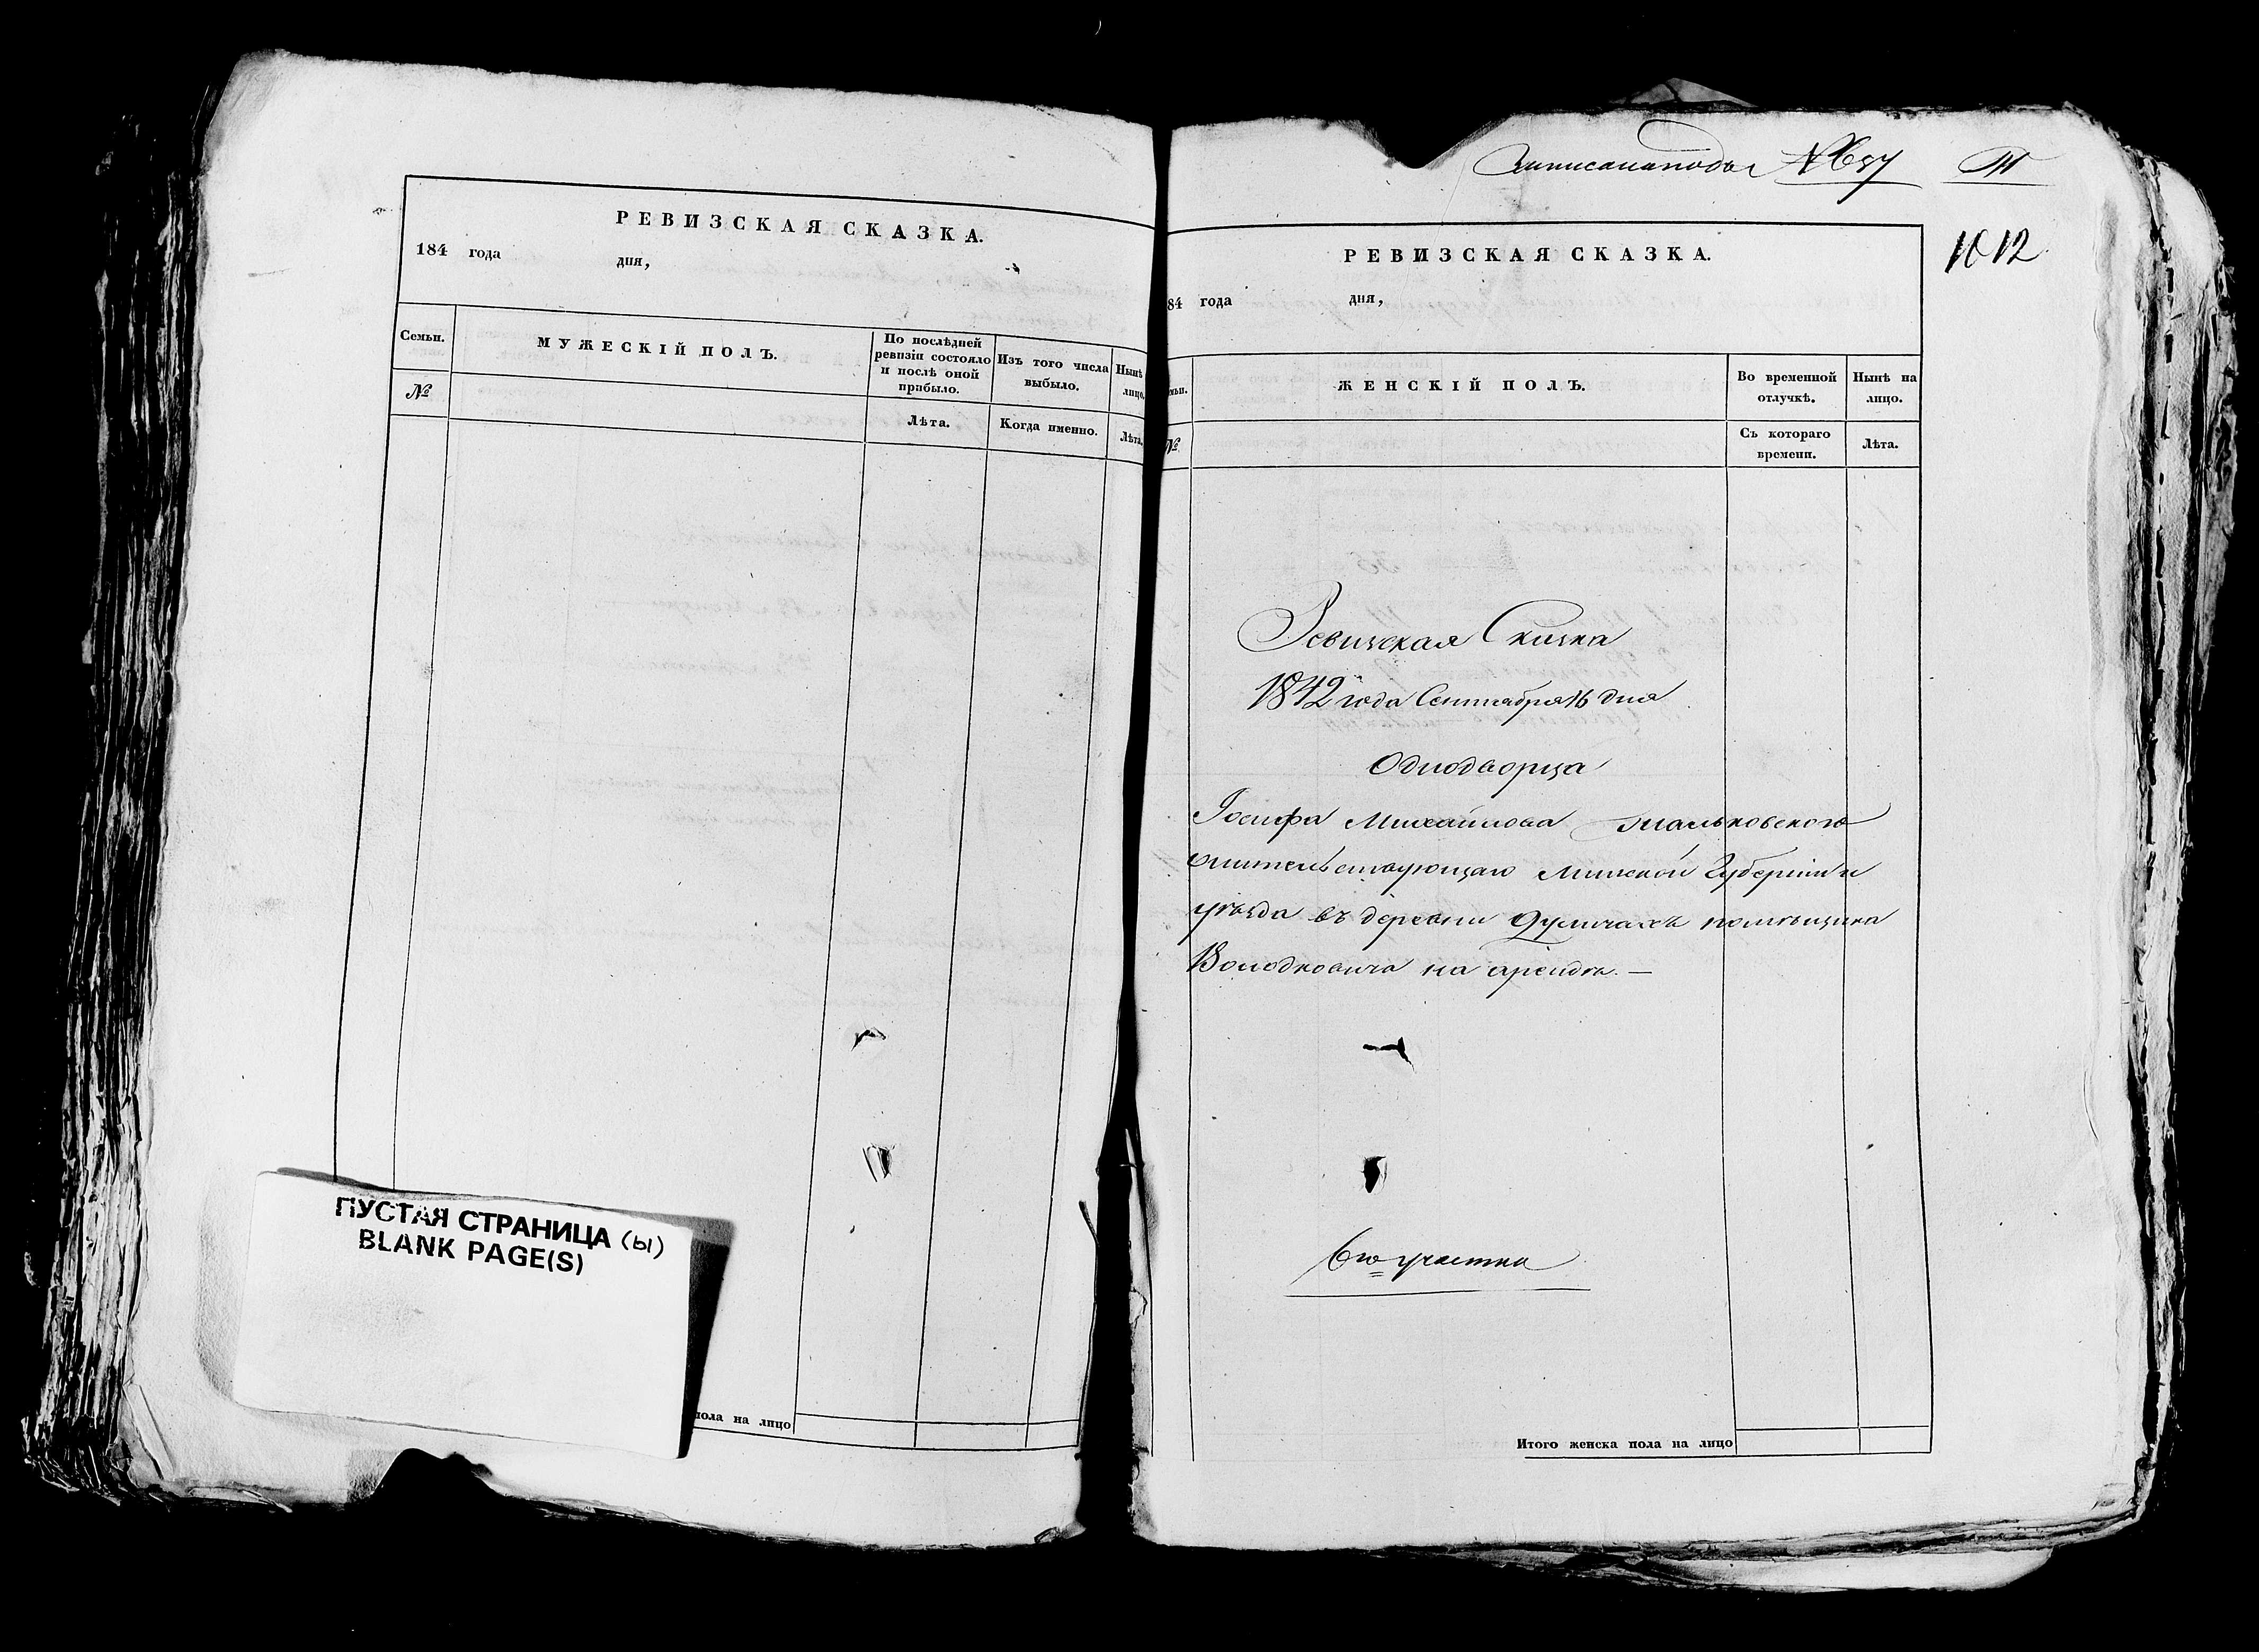 РЕВИЗСКАЯ СКАЗКА.
184 года дня,
Семьи.
МУЖЕСКІЙ ПОЛЪ.
По послѣдней
ревизіи состояло
и послѣ оной
прибыло.
Изъ того числа
выбыло.
Нынѣ
лицо.
№
Лѣта.
Когда именно.
Лѣта.
ПУСТАЯ СТРАНИЦА (Ы)
BLANK PAGE(S)
пола на лицо
Записана подъ №
1012
РЕВИЗСКАЯ СКАЗКА.
84 года дня,
мьи.
ЖЕНСКІЙ ПОЛЪ.
Во временной
отлучкѣ.
Нынѣ на
лицо.
№
Съ котораго
времени.
Лѣта.
Ревизская Сказка
1842 года Сентября 16 дня
Однодворца
Іосифа Михайлова
жительствующаго Минской Губерніи и
уѣзда въ деревни помѣщика
Володковича на арендѣ. —
6го участка
Итого женска пола на лицо